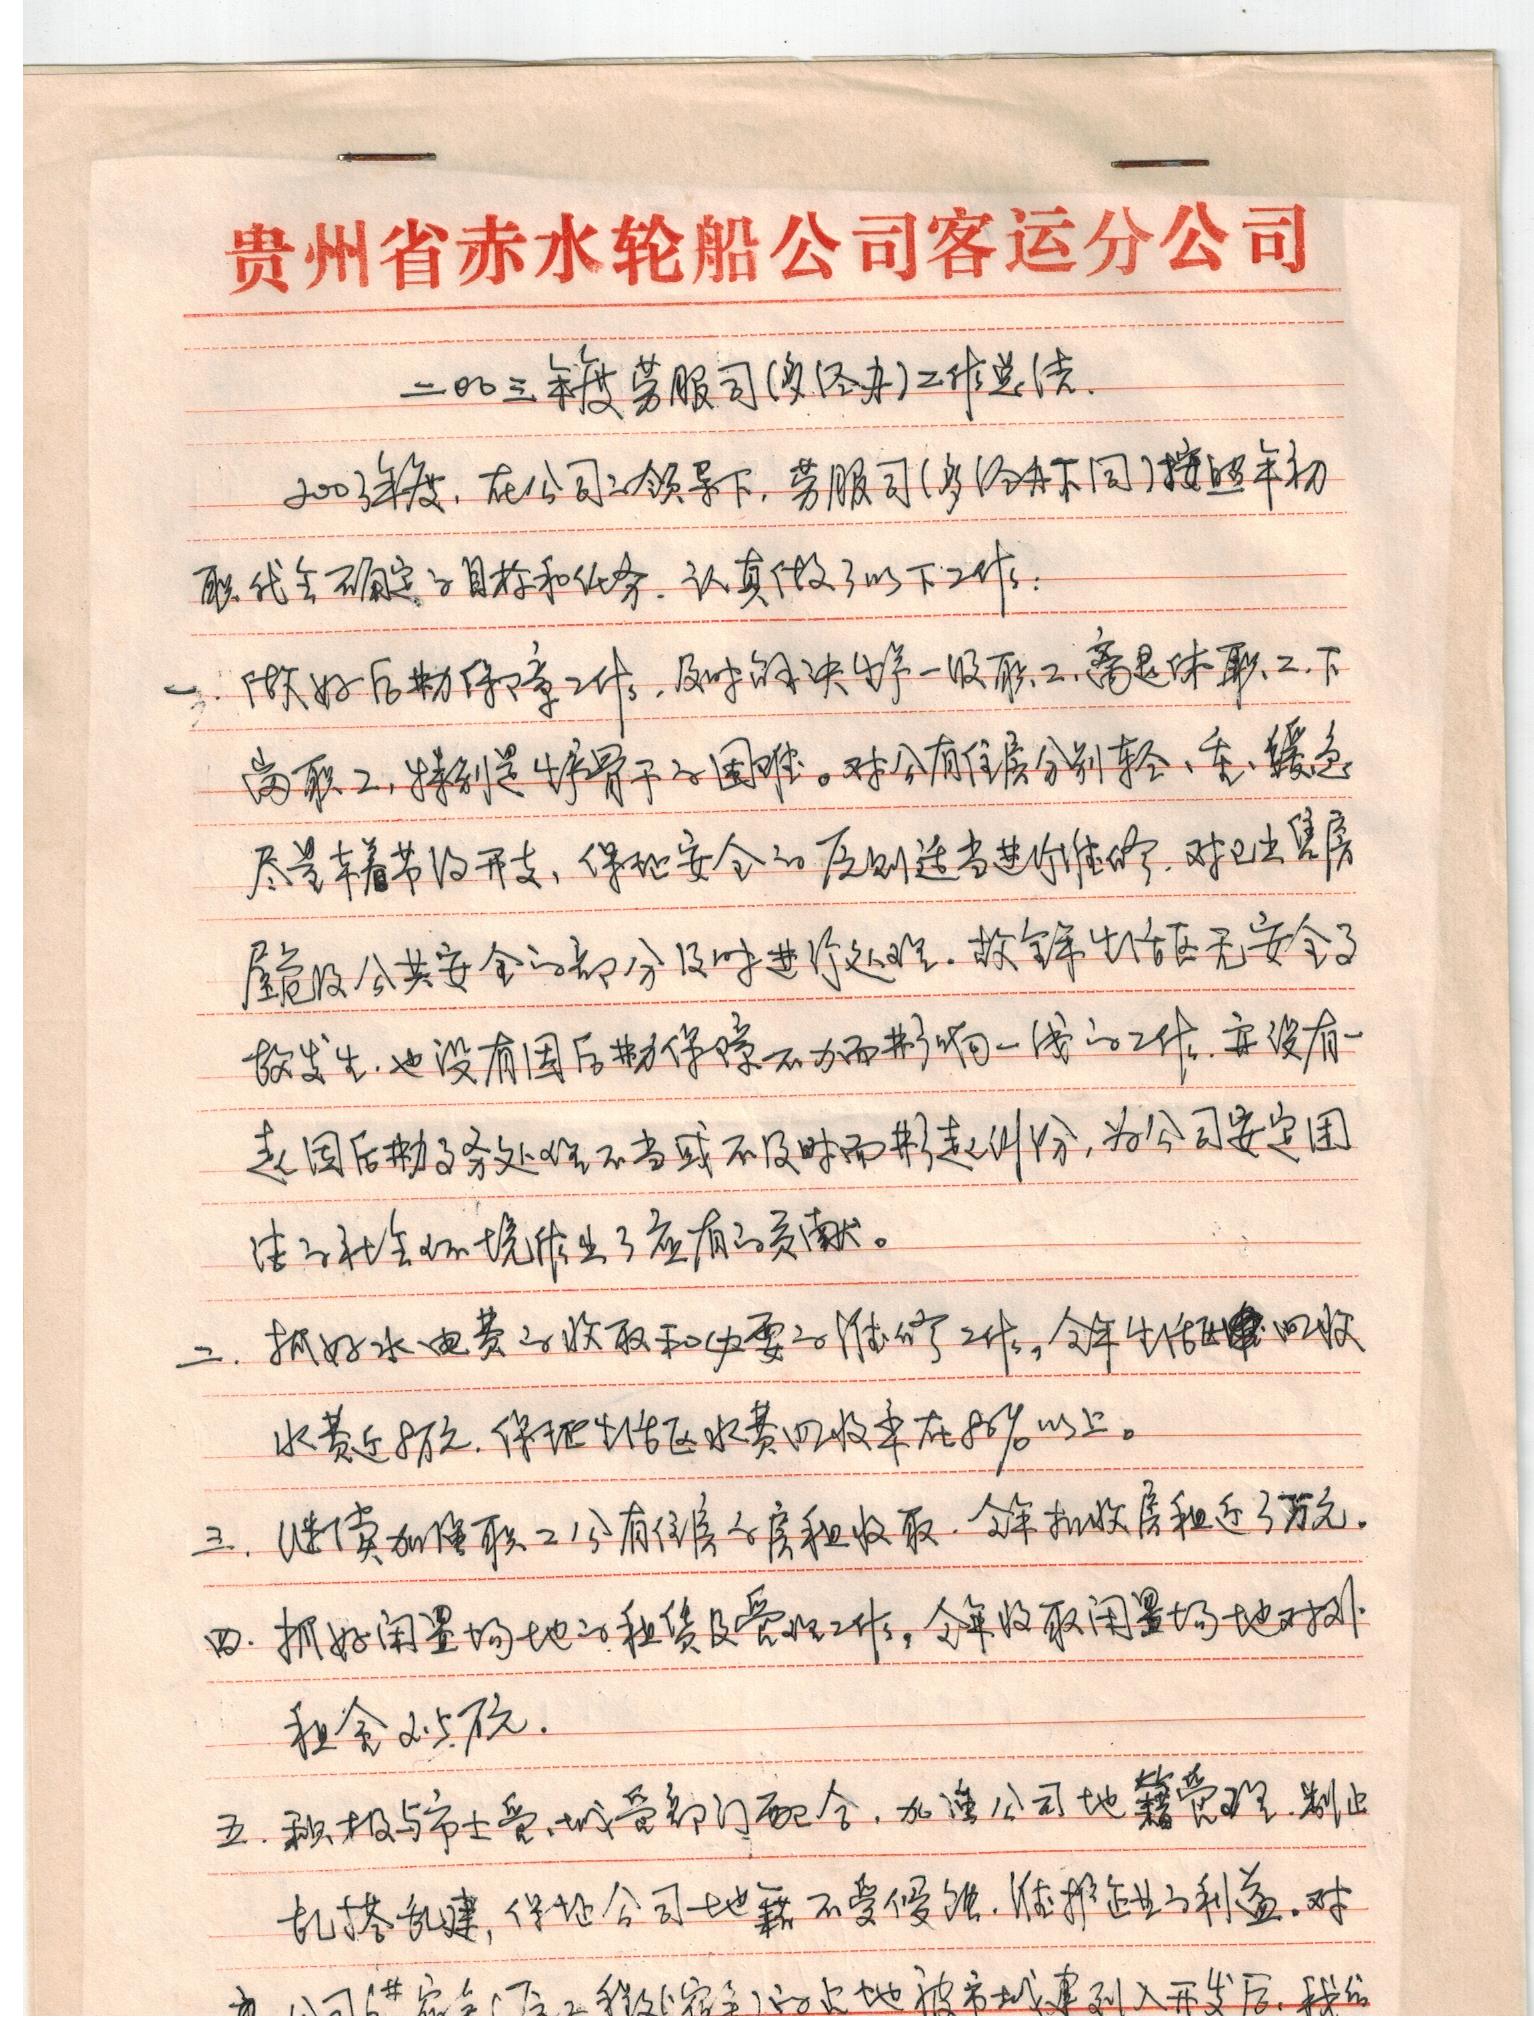 贵州省赤水轮船公司客运分公司
二00三年度劳服司(多经办)工作总结.
2003年度,在公司的领导下,劳服司(多经办下同)按照年初
职代会确定的目标和任务.认真做了以下工作:
一.做好后勤保障工作.及时解决生产一级职工、离退休职工.下
岗职工,特别是生产骨干的困难。对公有住房分别轻、重、缓急
尽量本着节约开支,保证安全的原则适当进行维修.对已出售房
屋危及公共安全的部分及时进行处理.故全年生活区无安全事
故发生.也没有因后勤保障不力而影响一线的工作.亦没有一
起因后勤事务处理不当或不及时而引起纠纷,为公司安定团
结的社会环境作出了应有的贡献。
二.抓好水、电费的收取和必要的维修工作。全年生活区回收
水费近8万元.保证生活区水费回收率在86%以上。
三.继续加强职工公有住房的房租收取.全年扣收房租近3万元。
四.抓好闲置场地的租赁及管理工作。全年收取闲置场地对外
租金2.5万元.
五.积极与市土管、城管部门配合.加强公司地籍管理.制止
乱搭乱建,保证公司地籍不受侵蚀.维护企业的利益。对
公司 宿舍 的土地被市城建列入开发后.我们